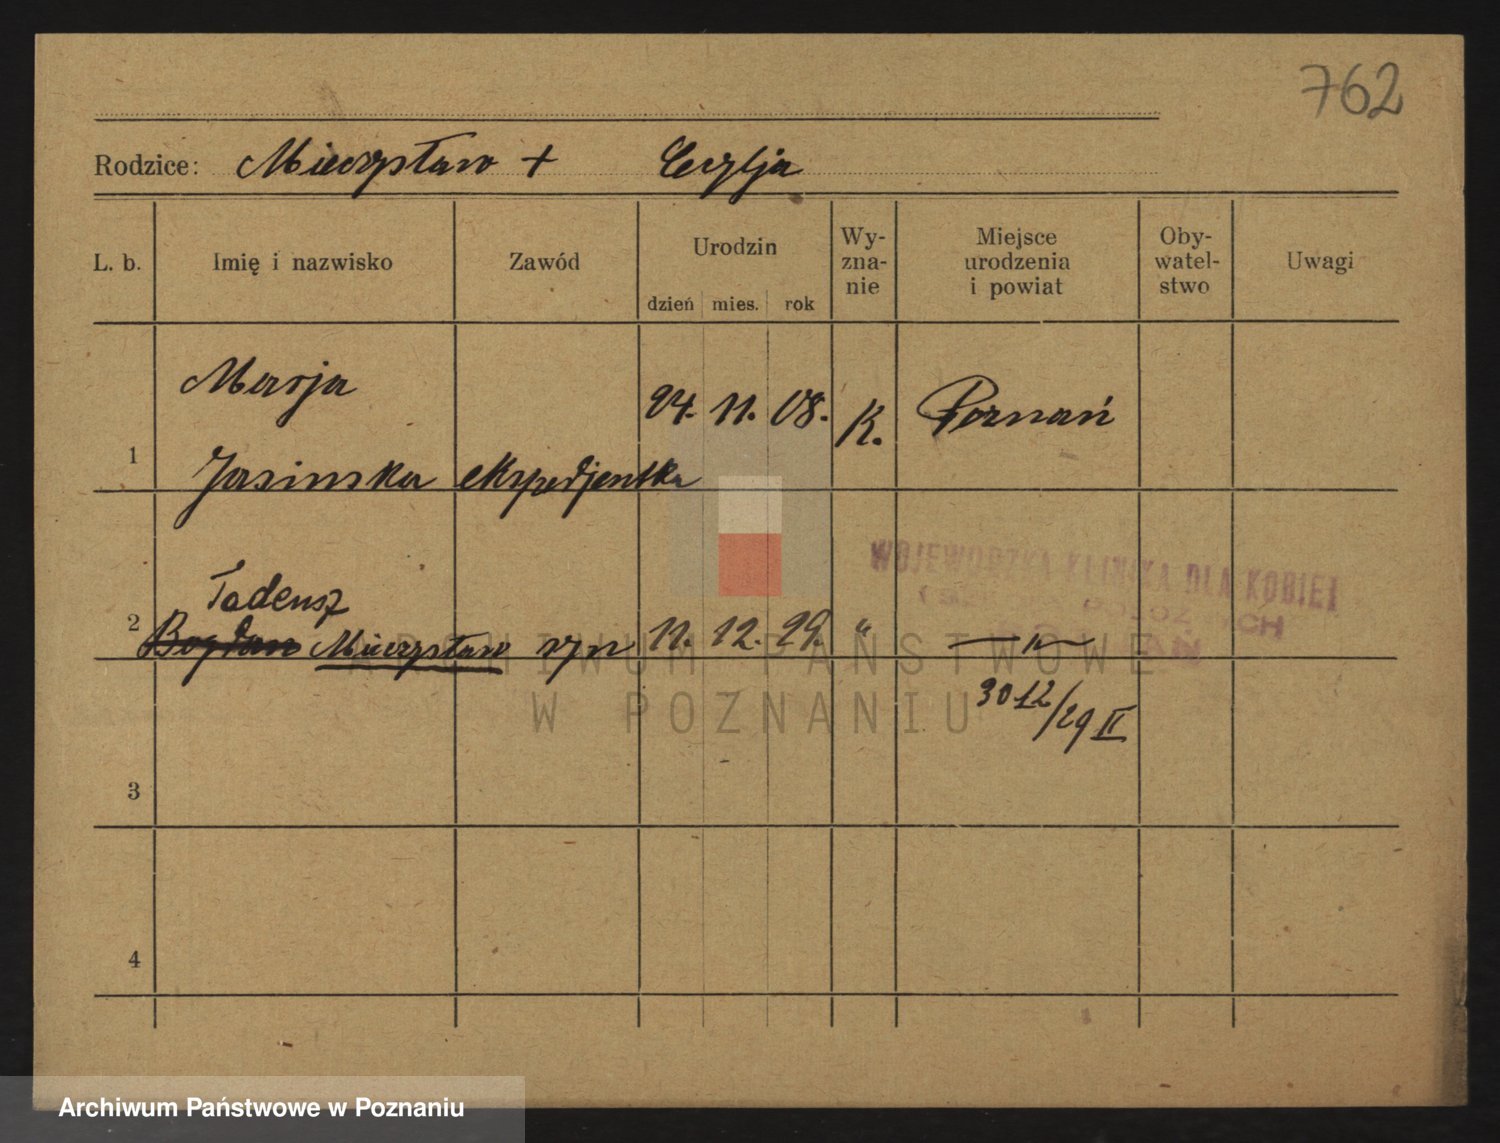 762
Rodzice: Mieczysław + Cecylja
L. b. Imię i nazwisko Zawód Urodzin dzień mies. rok Wy-zna-nie Miejsce urodzenia i powiat Oby-watel-stwo Uwagi
Marja
1 Jasinska ekspedjentka 24. 11. 08. K. Poznań
WOJEWÓDZKA KLINIKA DLA KOBIET
Tadeusz
2 Bogdan Mieczysław syn 11. 12. 29. " — " —
30 12/29 II
3
4
ARCHIWUM PAŃSTWOWE
W POZNANIU
Archiwum Państwowe w Poznaniu